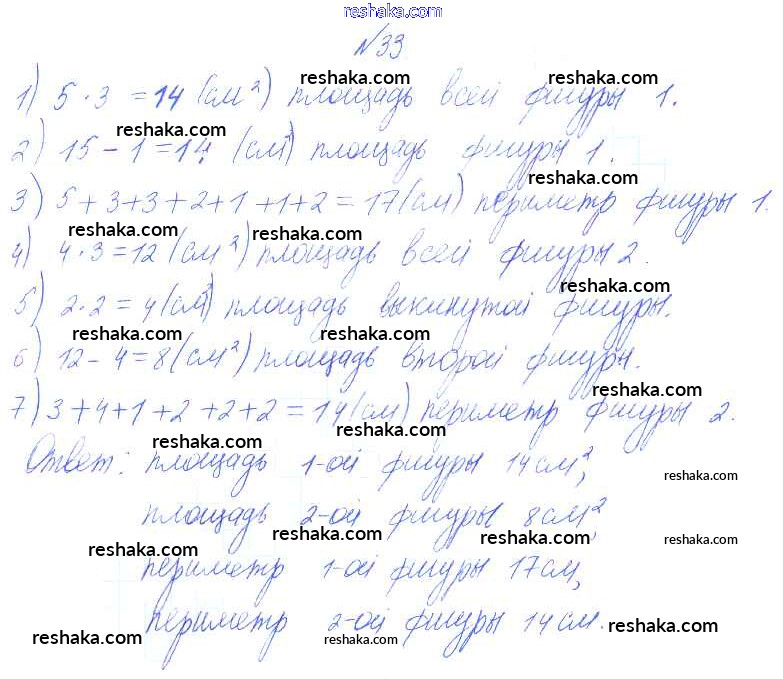 reshaka.com
№33
reshaka.com reshaka.com
1) 5·3=14(см²) площадь всей фигуры 1.
reshaka.com
2) 15-1=14 (см²) площадь фигуры 1.
reshaka.com
3) 5+3+3+2+1+1+2=17(см) периметр фигуры 1.
reshaka.com reshaka.com
4) 4·3=12(см²) площадь всей фигуры 2.
reshaka.com
5) 2·2=4(см²) площадь выкинутой фигуры.
reshaka.com reshaka.com
6) 12-4=8(см²) площадь второй фигуры.
reshaka.com
7) 3+4+1+2+2+2=14(см) периметр фигуры 2.
reshaka.com
Ответ: площадь 1-ой фигуры 14см²,
reshaka.com
площадь 2-ой фигуры 8см²,
reshaka.com reshaka.com
reshaka.com
периметр 1-ой фигуры 17см,
периметр 2-ой фигуры 14см.
reshaka.com reshaka.com reshaka.com